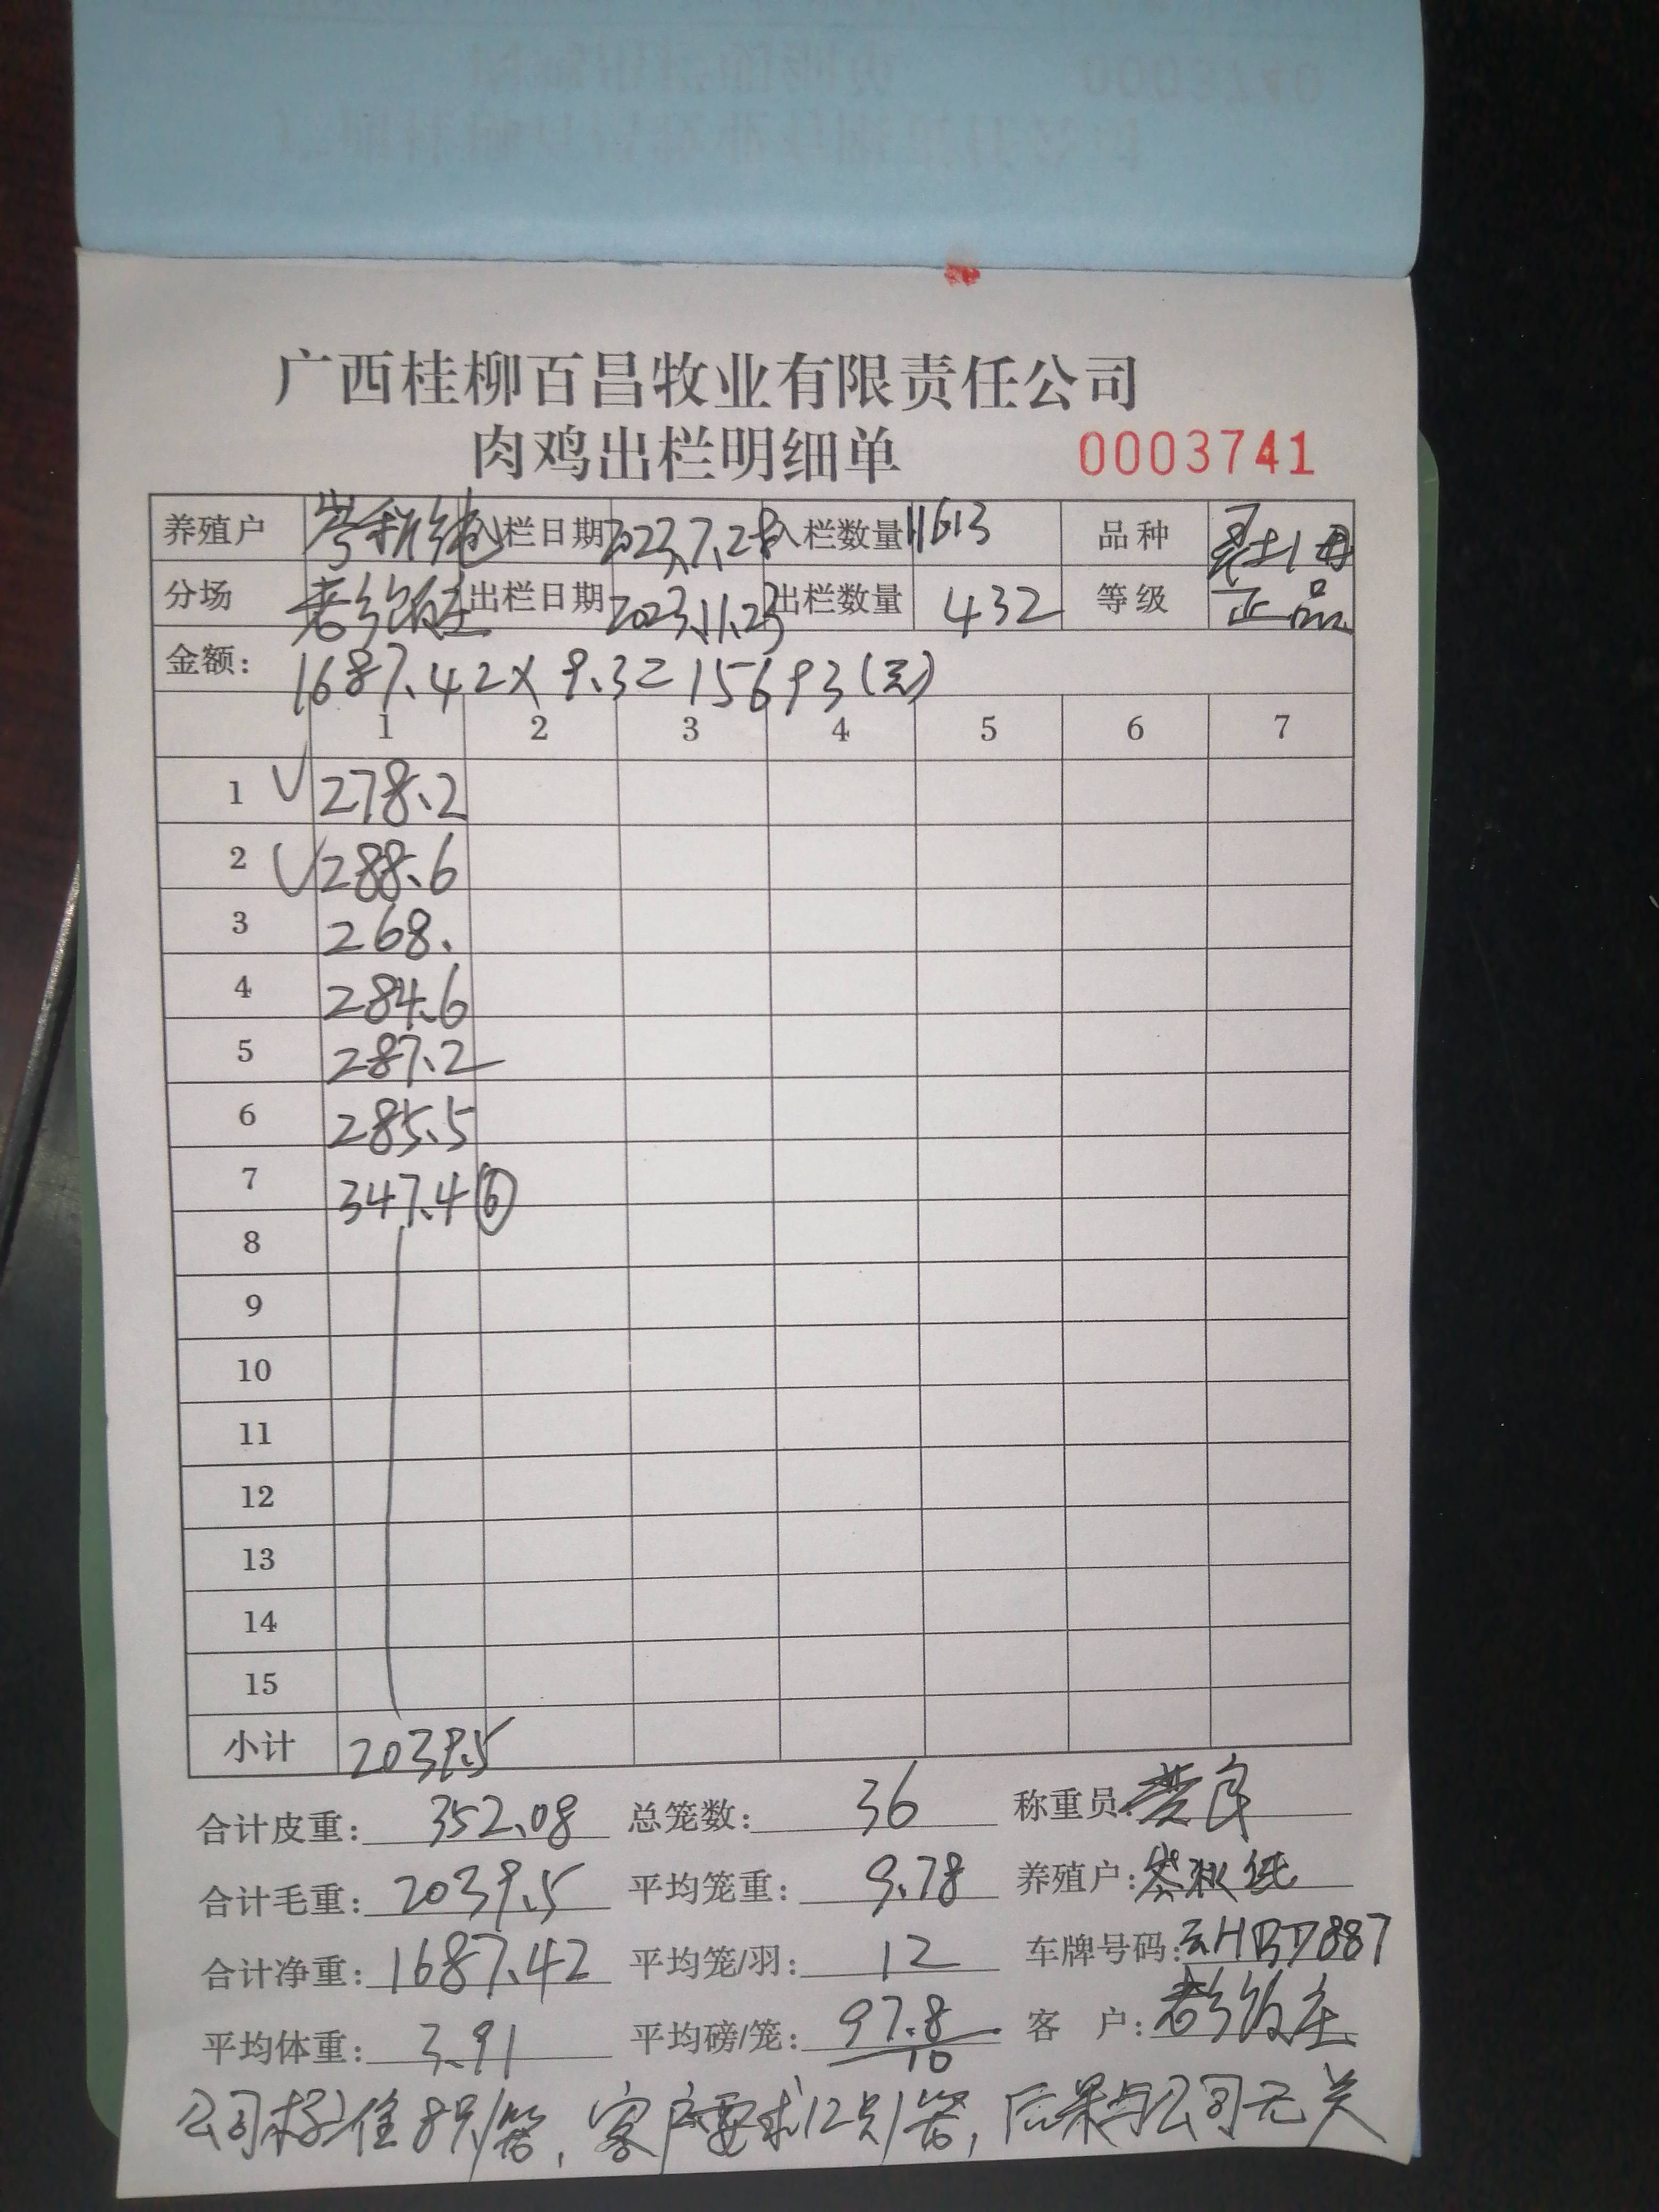 广西桂柳百昌牧业有限责任公司
肉鸡出栏明细单 0003741
养殖户 入栏日期 2023.7.28 入栏数量 11613 品种
分场 出栏日期 2023.11.23 出栏数量 432 等级 正品
金额: 1687.42×9.3=15693(元)
1 2 3 4 5 6 7
1 √ 278.2
2 √ 288.6
3 268.
4 284.6
5 287.2
6 285.5
7 347.4 ⑥
8
9
10
11
12
13
14
15
小计 2039.5
合计皮重: 352.08 总笼数: 36 称重员:
合计毛重: 2039.5 平均笼重: 9.78 养殖户:
合计净重: 1687.42 平均笼/羽: 12 车牌号码: 云HBD887
平均体重: 3.91 平均磅/笼: 97.8/10 客 户:
公司标准8只/笼, 客户要求12只/笼, 后果与公司无关